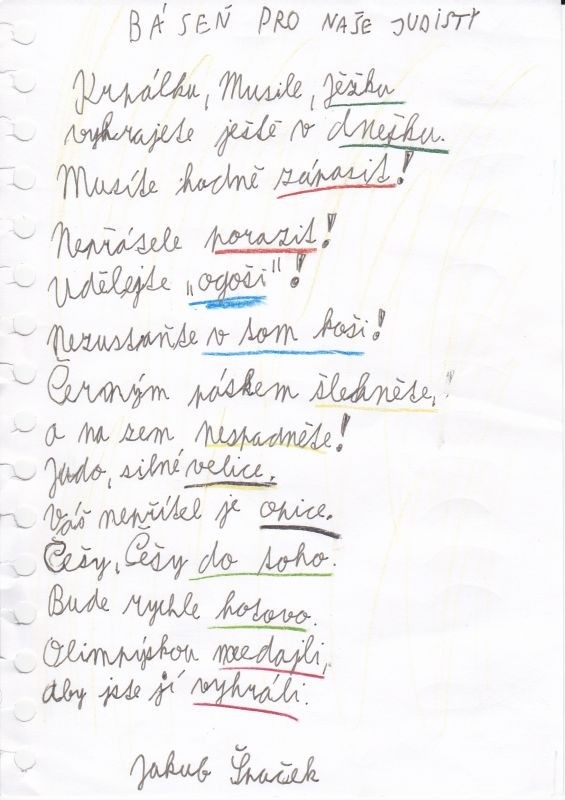 BÁSEŇ PRO NAŠE JUDISTY
Krpálku, Musile, Ježku
vyhrajete ještě v dnešku.
Musíte hodně zápasit!
Nepřásele porazit!
Udělejte „ogoši"!
Nezustaňte v tom koši!
Černým páskem šlehněte,
a na zem nespadněte!
Judo, silné velice.
Váš nepřítel je opice.
Češy, Češy do toho.
Bude rychle hotovo.
Olimpýskou medajli,
aby jste jí vyhráli.
Jakub